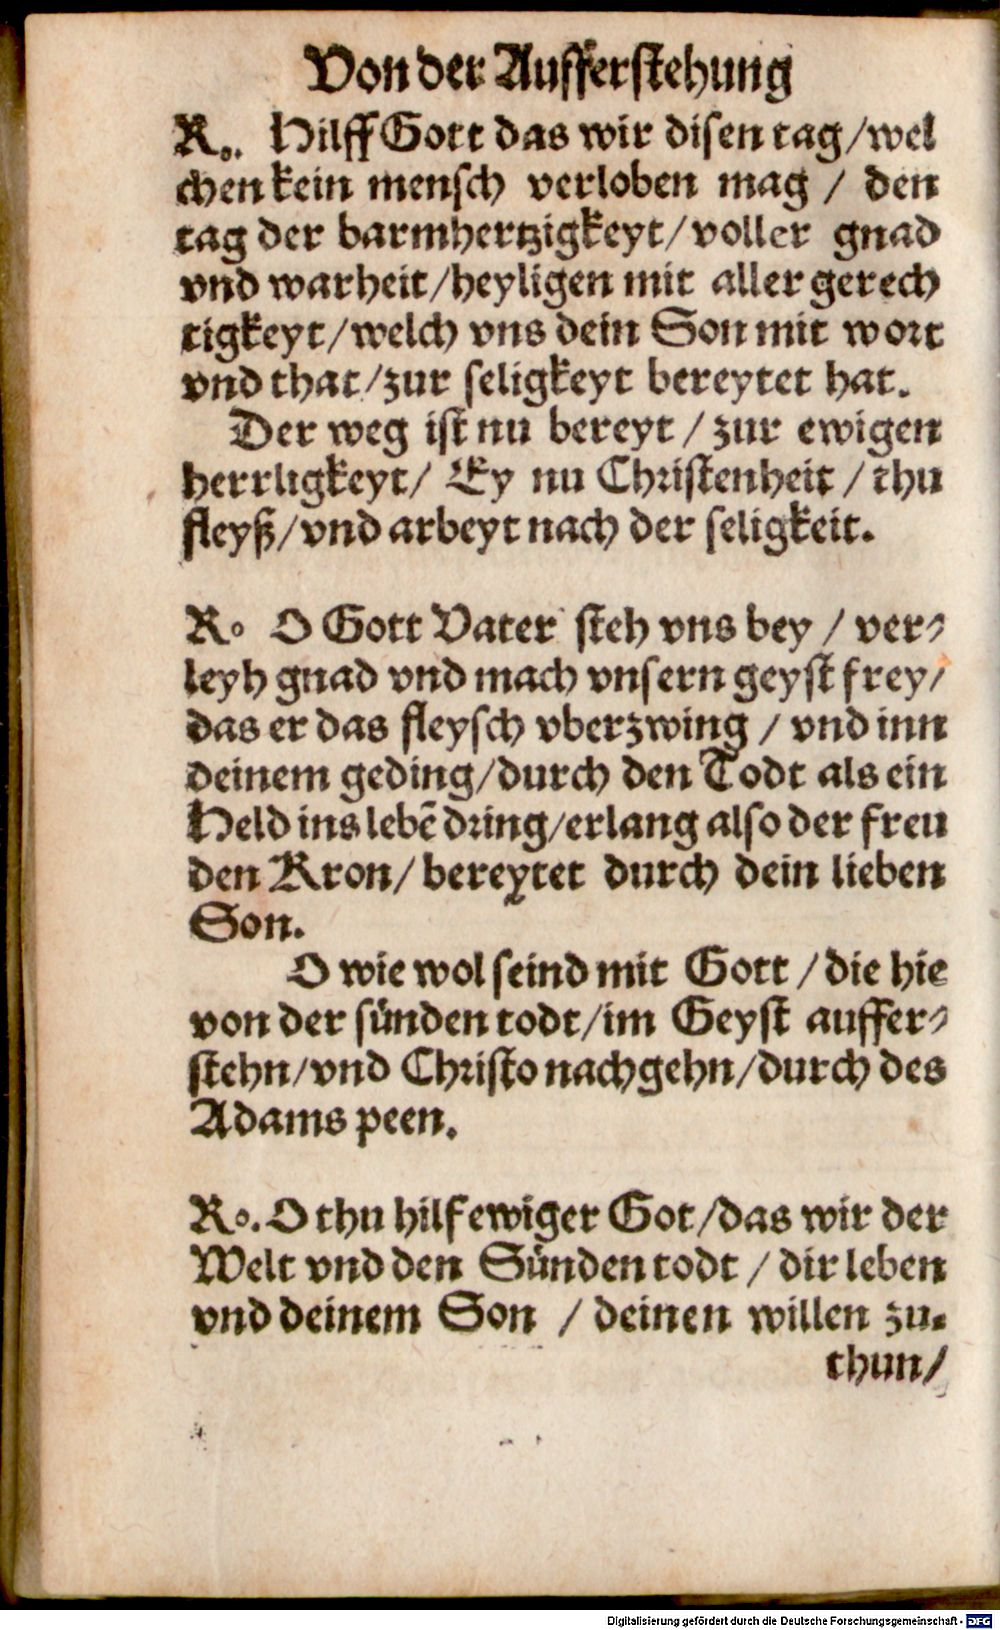 Von der Aufferstehung
R.. Hilff Gott das wir disen tag/wel
chen kein mensch verloben mag / den
tag der barmhertzigkeyt/voller gnad
vnd warheit/heyligen mit aller gerech
tigkeyt/welch vns dein Son mit wort
vnd that/zur seligkeyt bereytet hat.
Der weg ist nu bereyt / zur ewigen
herrligkeyt/ Ey nu Christenheit / thu
fleyß/vnd arbeyt nach der seligkeit.
R. O Gott Vater steh vns bey / ver-
leyh gnad vnd mach vnsern geyst frey/
das er das fleysch vberzwing / vnd inn
deinem geding/durch den Todt als ein
Held ins lebẽ dring/erlang also der freu
den Kron/ bereytet durch dein lieben
Son.
O wie wol seind mit Gott / die hie
von der sünden todt/im Geyst auffer-
stehn/vnd Christo nachgehn/durch des
Adams peen.
R.. O thu hilf ewiger Got/das wir der
Welt vnd den Sünden todt / dir leben
vnd deinem Son / deinen willen zu-
thun/
Digitalisierung gefördert durch die Deutsche Forschungsgemeinschaft - DFG